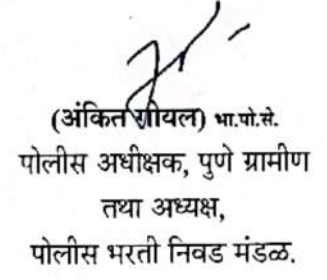 (अंकित गोयल) भा.पो.से.
पोलीस अधीक्षक, पुणे ग्रामीण
तथा अध्यक्ष,
पोलीस भरती निवड मंडळ.